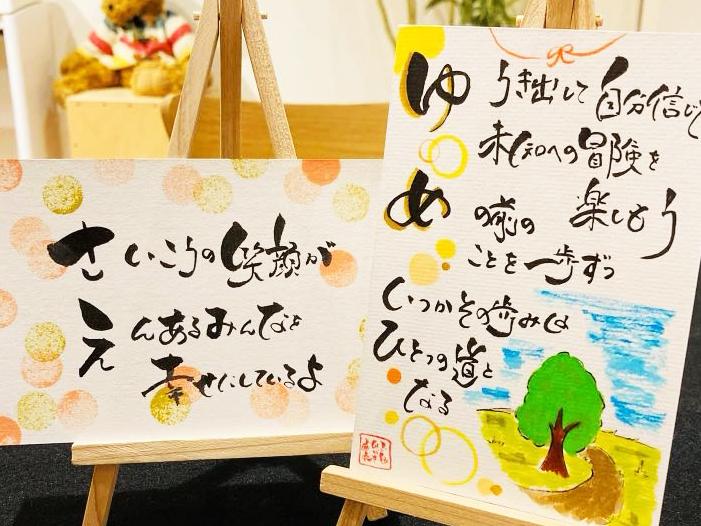 さいこうの笑顔が
えんあるみんなを
幸せにしているよ
ゆうき出して自分信じ
未知への冒険を
楽しもう
めの前の
ことを一歩ずつ
いつかその歩みは
ひとつの道と
なる